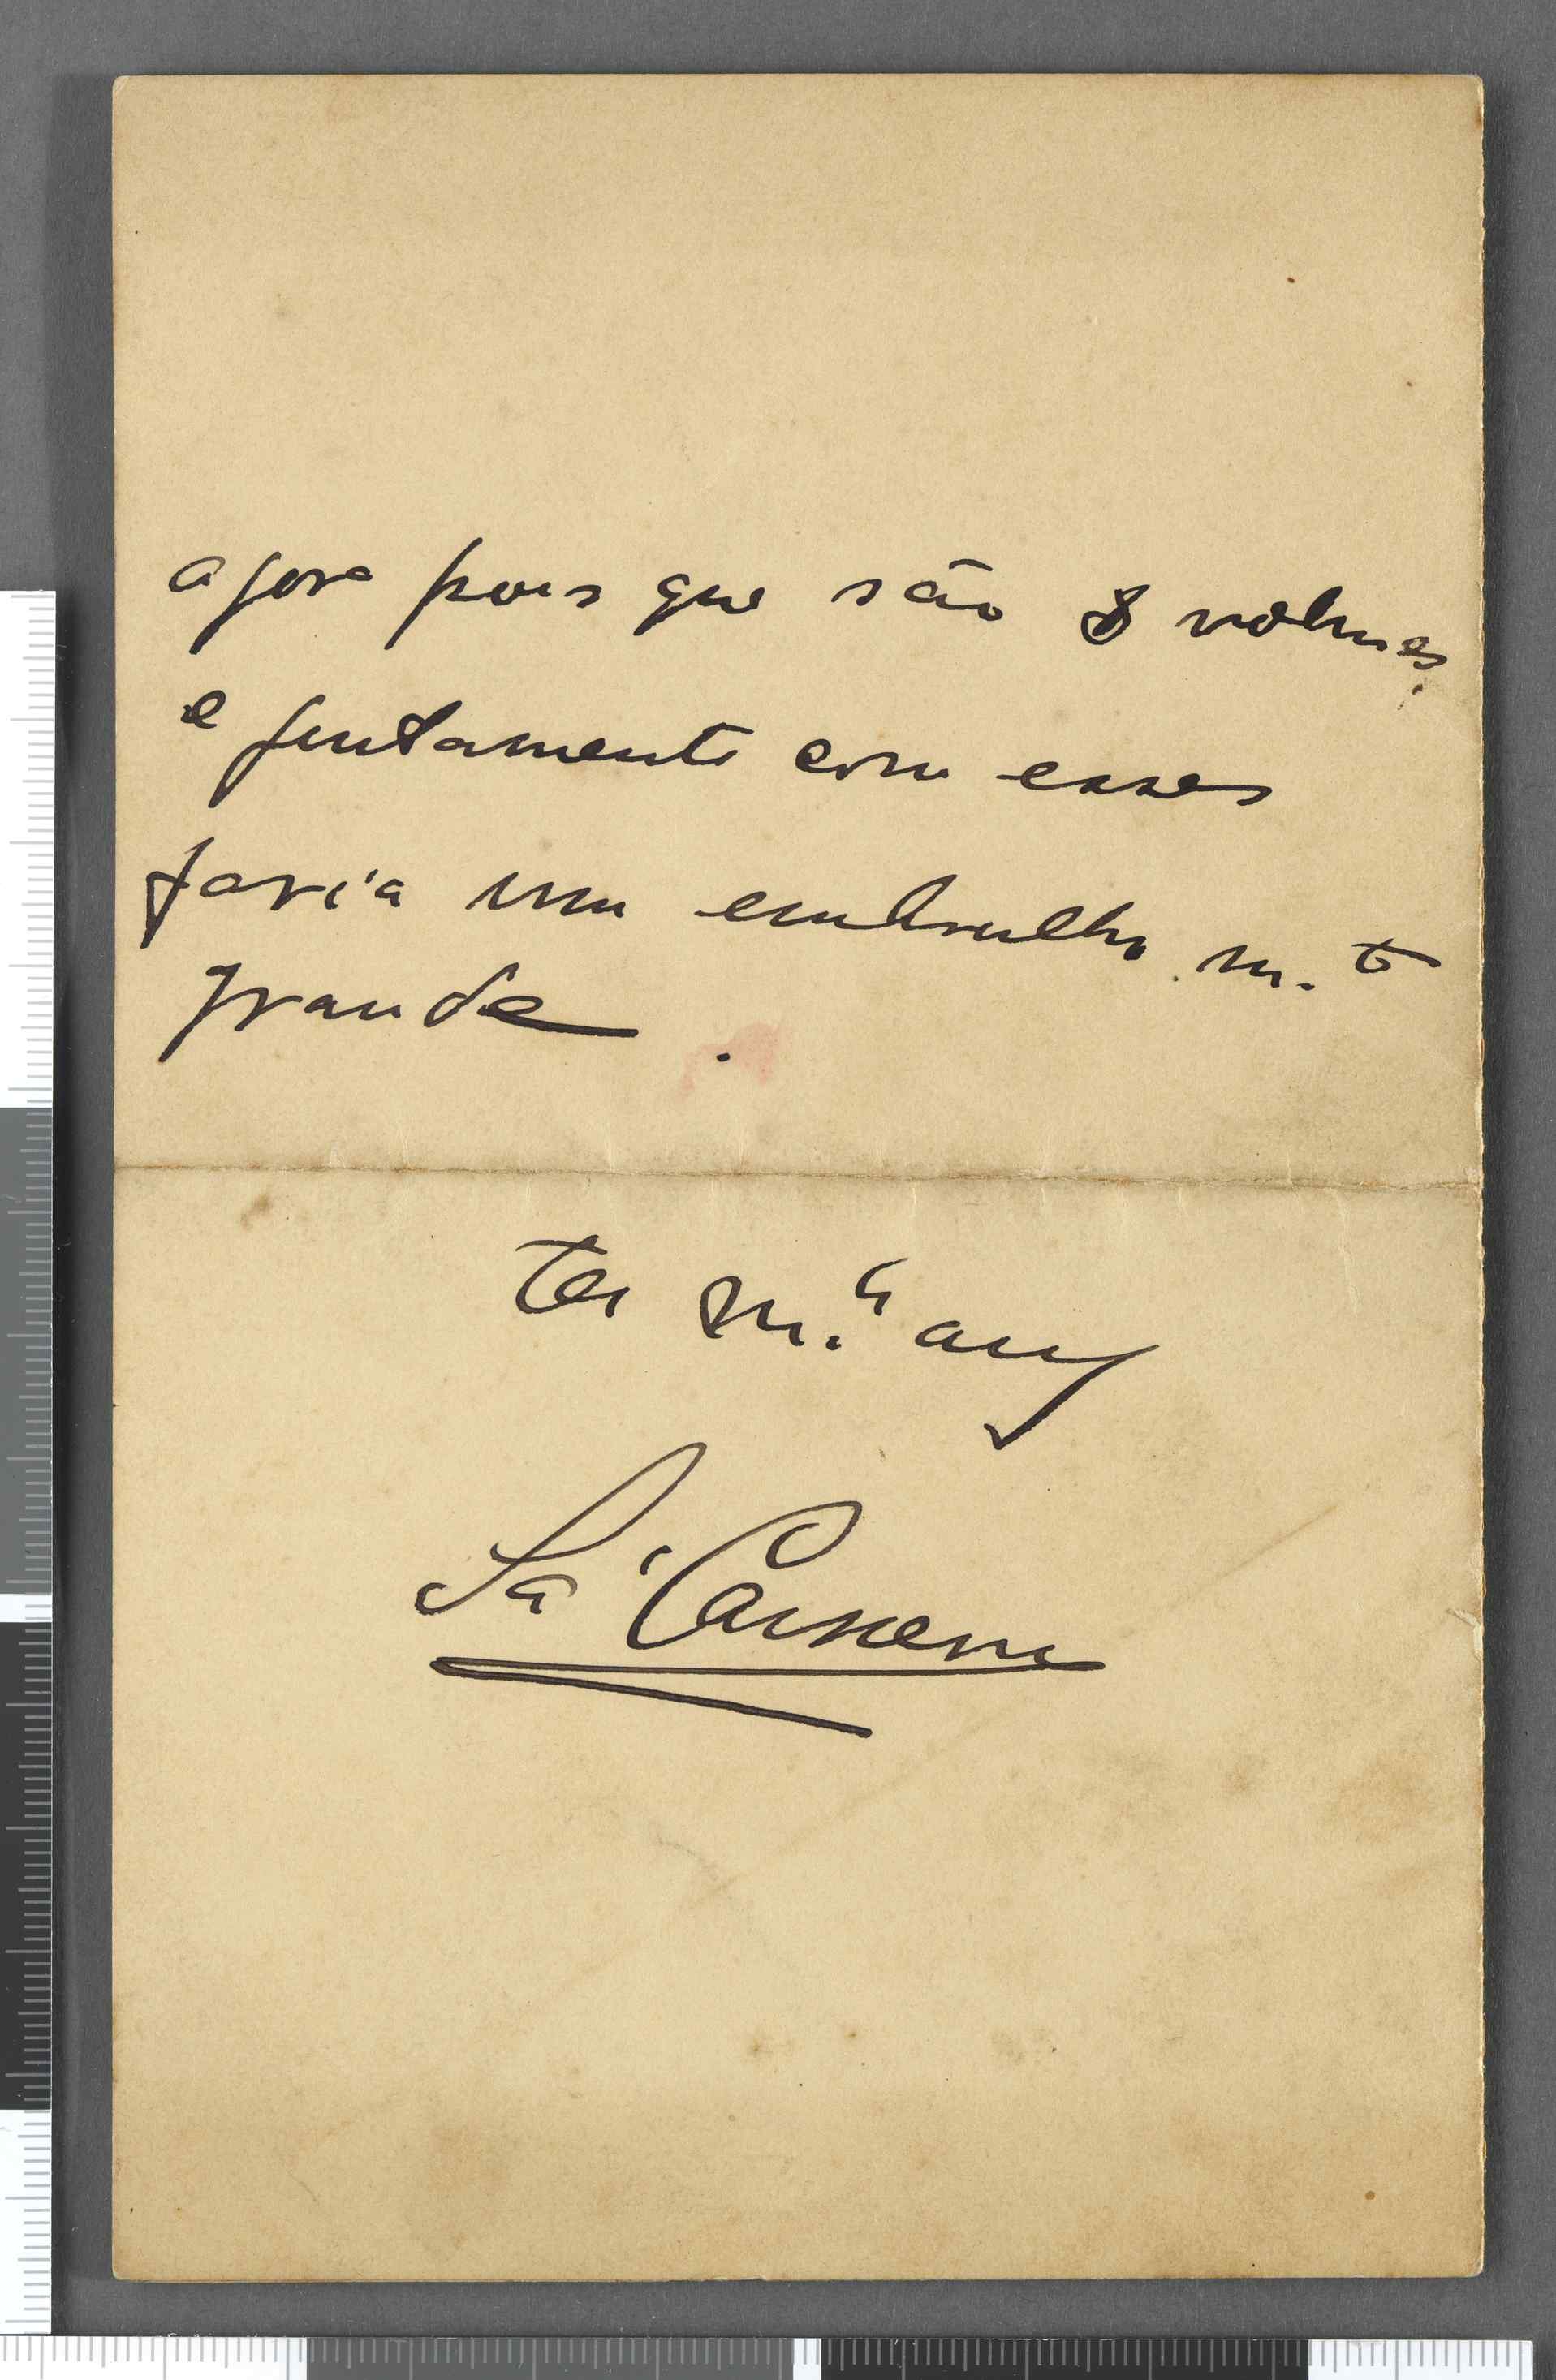 agora pois que são 8 volumes
e juntamente com esses
faria um embrulho m.to
grande.
teu m.to amº
Sá Carneiro